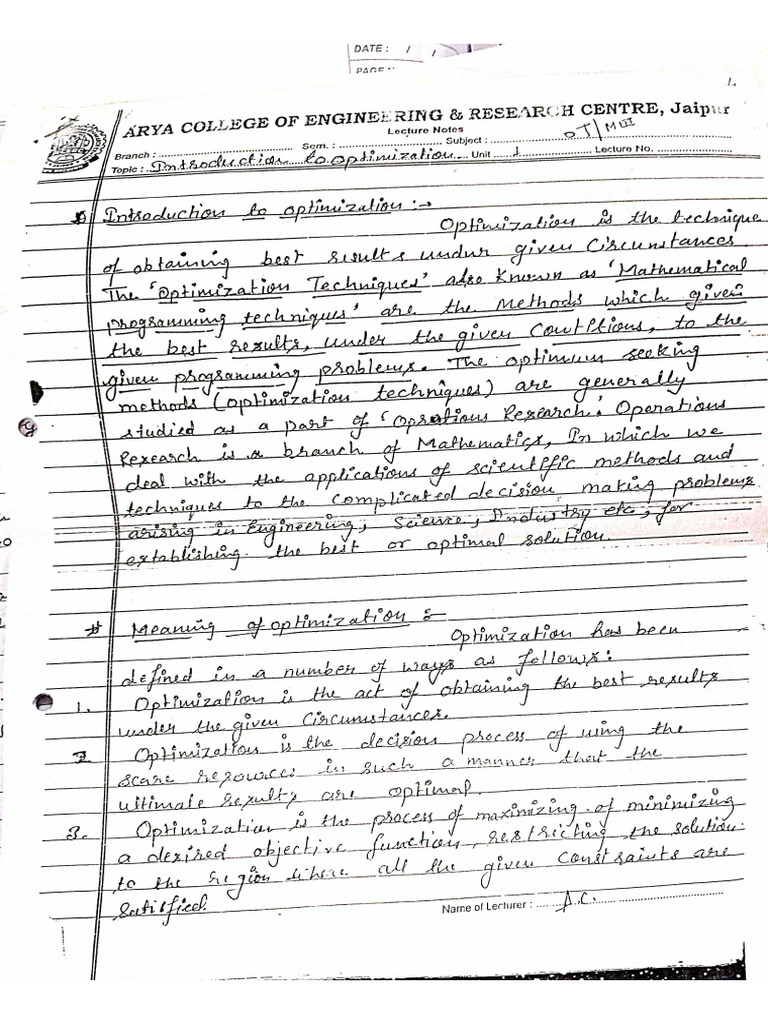 DATE : / /
PAGE
1.
ARYA COLLEGE OF ENGINEERING & RESEARCH CENTRE, Jaipur
Lecture Notes
Branch : Sem. : Subject : OT/MIII
Topic : Introduction to optimization Unit 1 Lecture No.
Introduction to optimization :-
Optimization is the technique
of obtaining best results under given Circumstances
The 'Optimization Techniques' also known as 'Mathematical
programming techniques' are the methods which given
the best results, under the given conditions, to the
given programming problems. The optimum seeking
methods (optimization techniques) are generally
studied as a part of 'Operations Research'. Operations
Research is a branch of Mathematics, In which we
deal with the applications of scientific methods and
techniques to the complicated decision making problems
arising in Engineering, Science, Industry etc, for
establishing the best or optimal solution.
# Meaning of optimization :-
Optimization has been
defined in a number of ways as follows:
1. Optimization is the act of obtaining the best results
under the given Circumstances.
2. Optimization is the decision process of using the
scare resources in such a manner that the
ultimate results are optimal.
3. Optimization is the process of maximizing of minimizing
a desired objective function, restricting the solution
to the region where all the given constraints are
Satisfied.
Name of Lecturer : A.C.